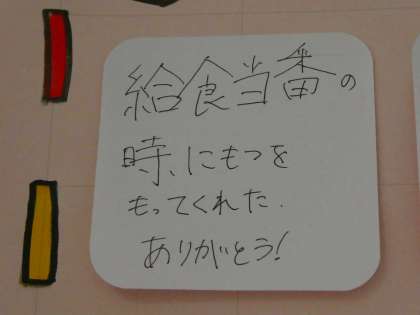 給食当番の
時、にもつを
もってくれた.
ありがとう!